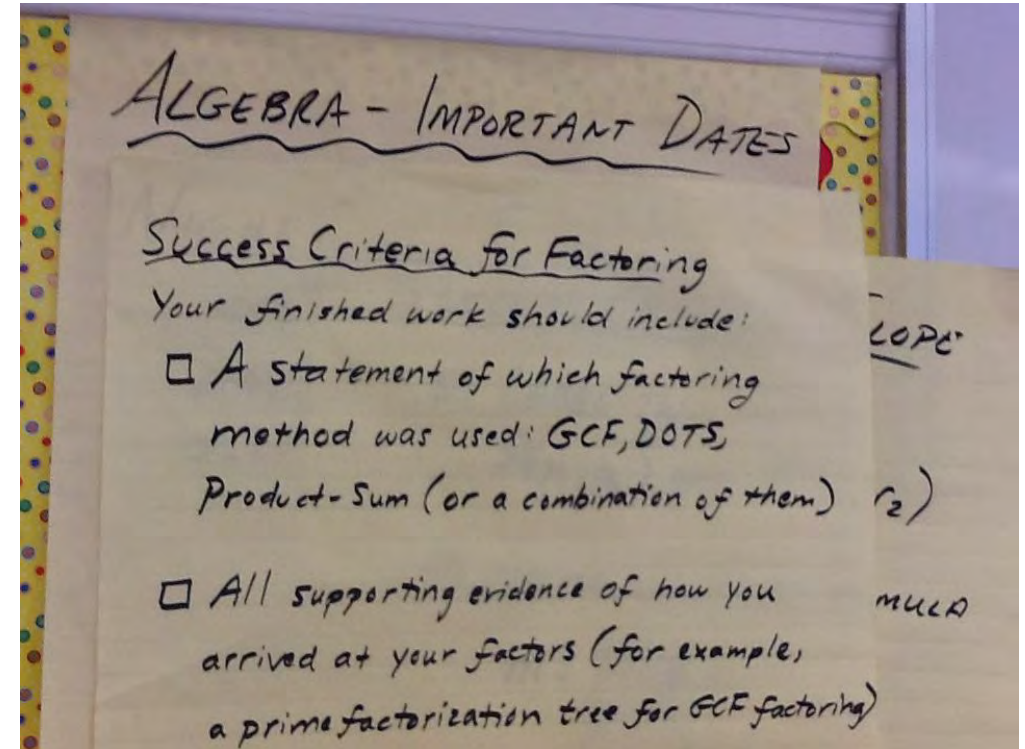 ALGEBRA - IMPORTANT DATES
Success Criteria for Factoring
Your finished work should include:
□ A statement of which factoring
method was used: GCF, DOTS,
Product-Sum (or a combination of them)
□ All supporting evidence of how you
arrived at your factors (for example,
a prime factorization tree for GCF factoring)
LOPE
r₂)
MULA